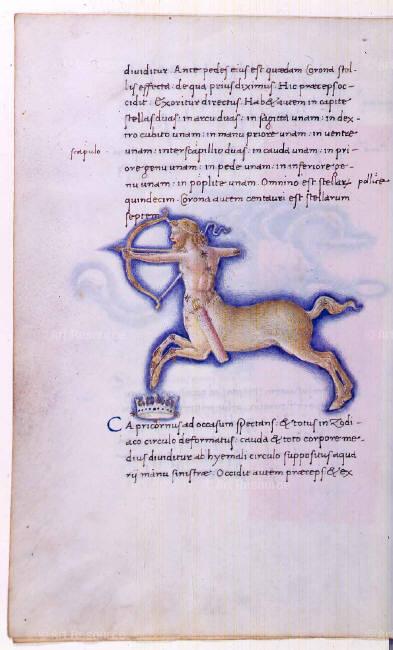 dividitur. Ante pedes eius est quædam Corona stel-
lis effecta: de qua prius diximus. Hic præceps oc-
cidit: Exoritur directus. Habet autem in capite
stellas duas: in arcu duas: in sagitta unam: in dex-
tro cubito unam: in manu priore unam: in ventre
unam: inter scapilio duas: in cauda unam: in pri-
scapulo
ore genu unam: in pede unam: in inferiore ge-
nu unam: in poplite unam. Omnino est stellar
quindecim. Corona autem centauri est stellarum
septem
CApricornus ad occasum spectans: & totus in Zodi-
aco circulo deformatus: cauda & toto corpore me-
dius dividitur ab hyemali circulo suppositus aqua
rii manu sinistræ. Occidit autem præceps & ex